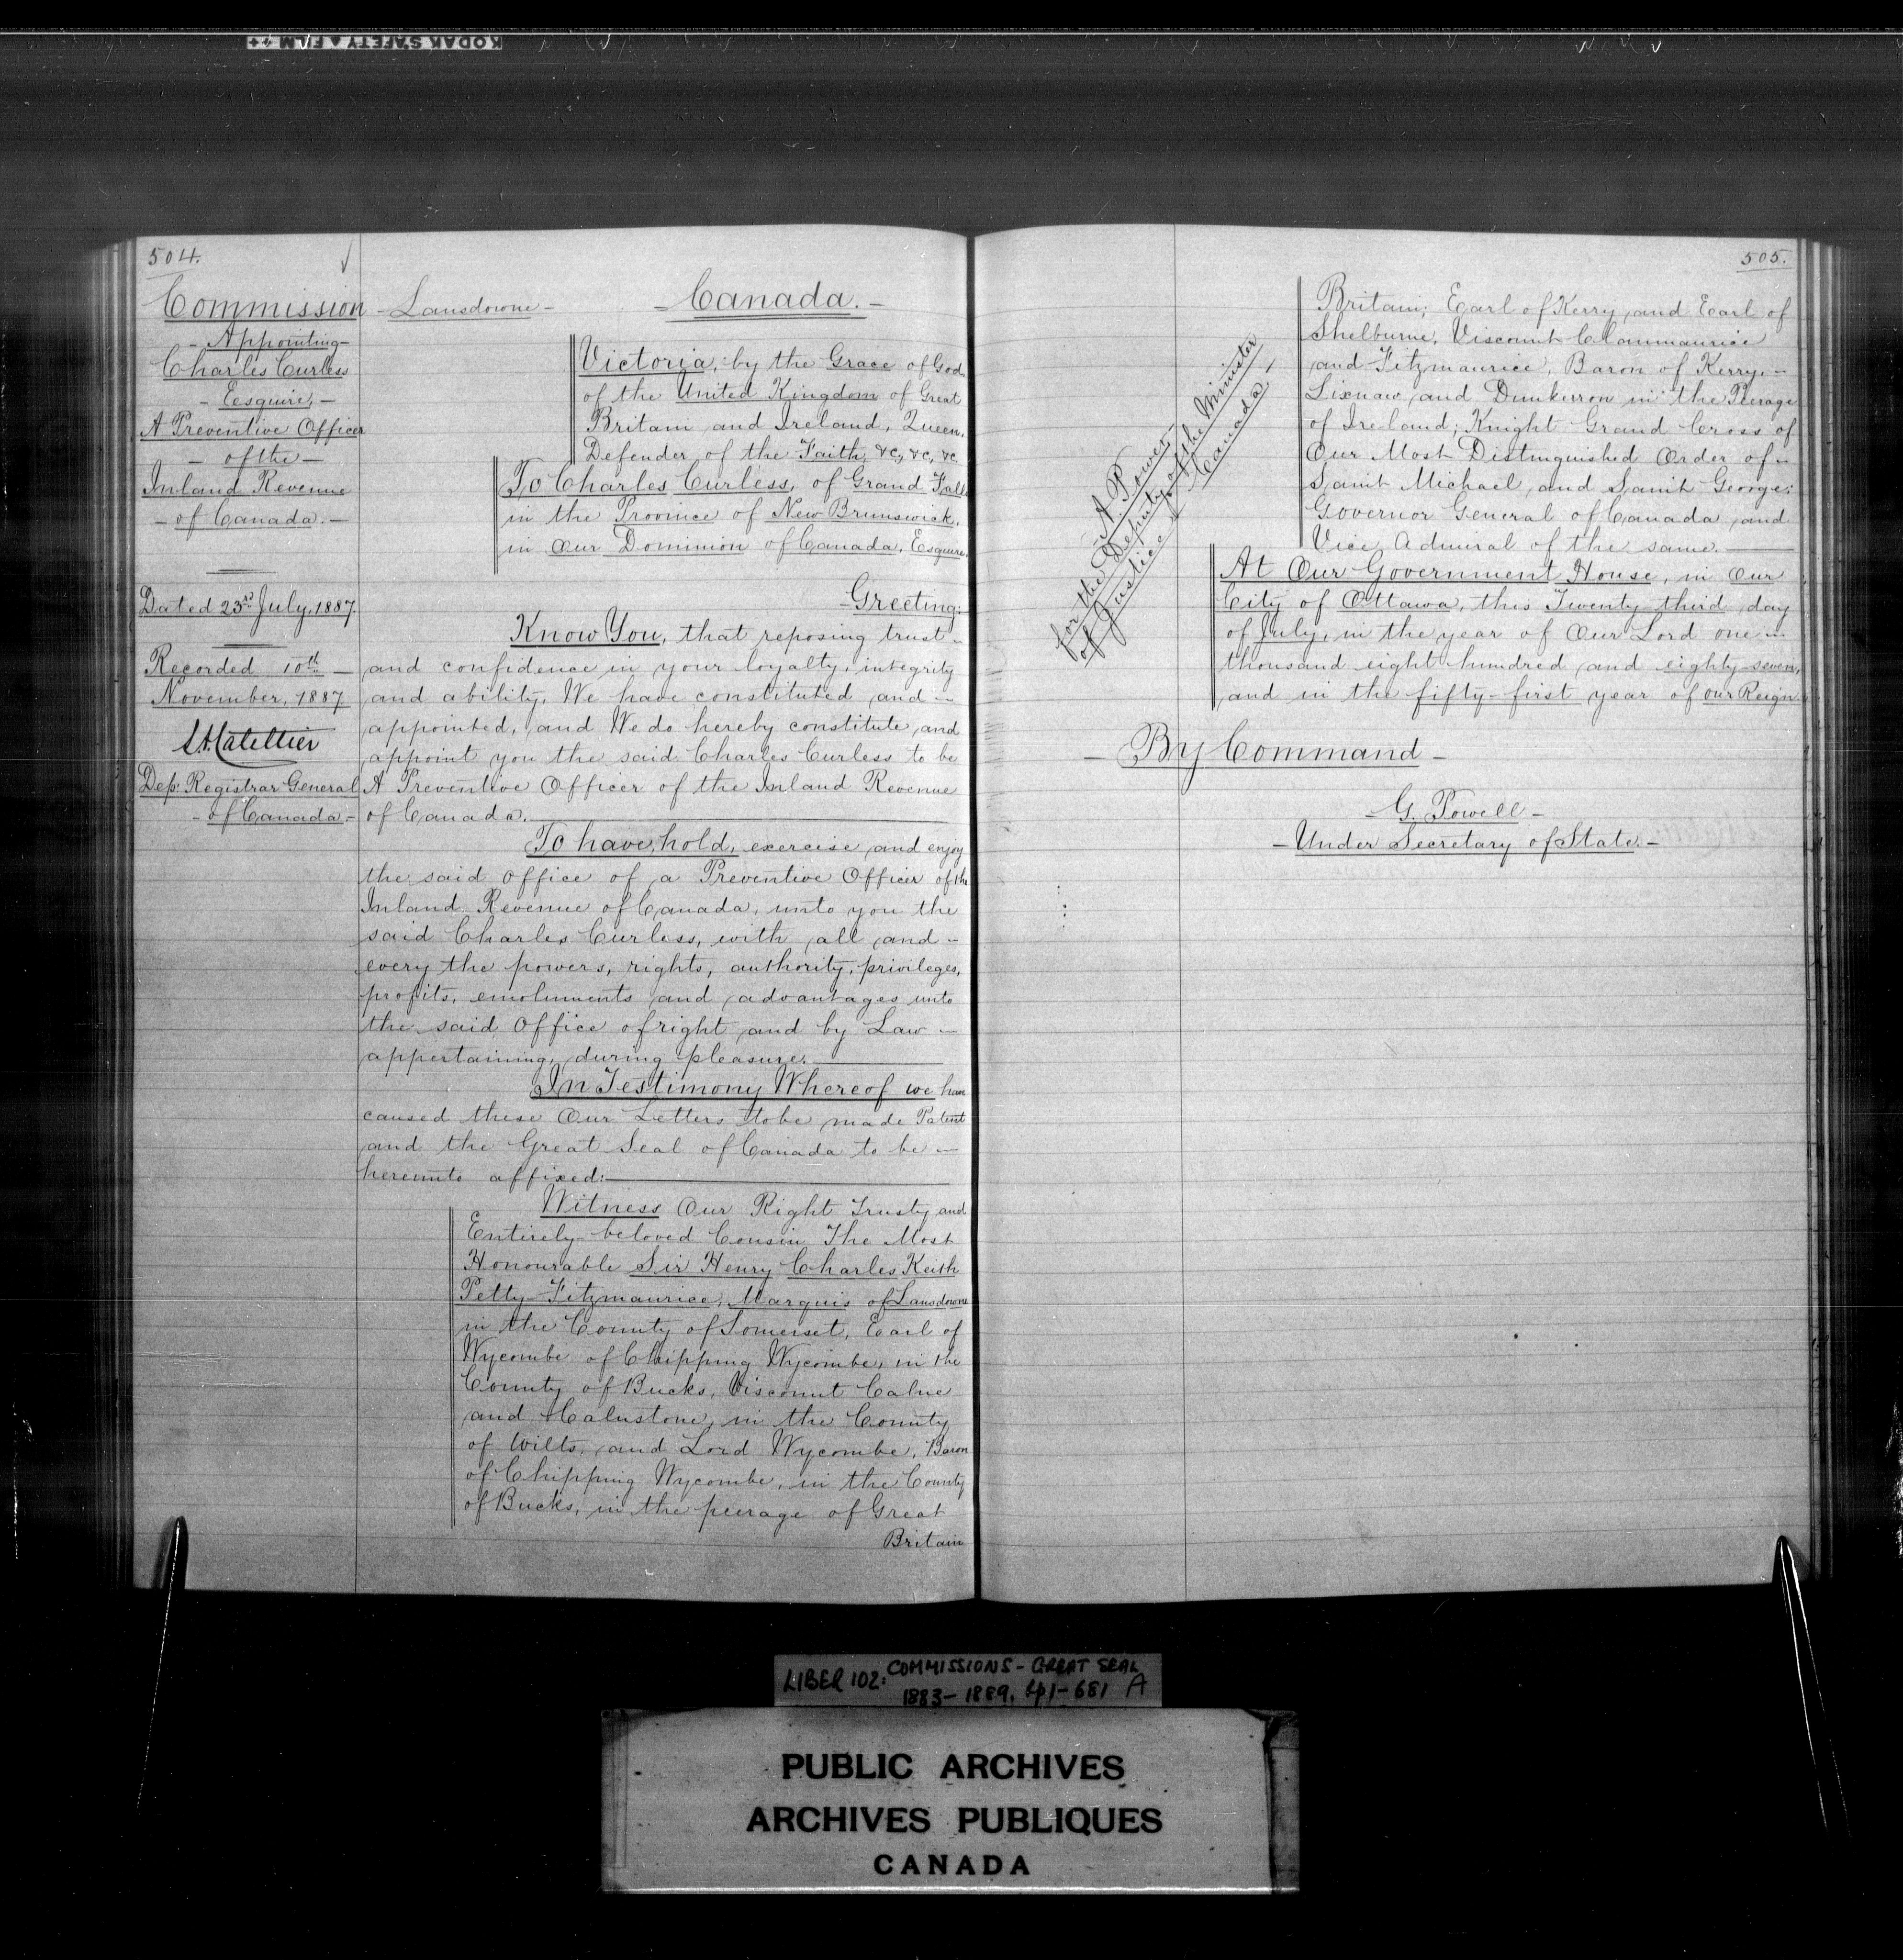 KODAK SAFETY FILM ++
504.
Commission
- Appointing -
Charles Curless
- Esquire, -
A Preventive Officer
- of the -
Inland Revenue
- of Canada. -
Dated 23rd July, 1887.
Recorded 10th -
November, 1887
Dep: Registrar General
- of Canada -
- Lansdowne -
- Canada. -
Victoria, by the Grace of God
of the United Kingdom of Great
Britain and Ireland, Queen,
Defender of the Faith, &c, &c, &c.
To Charles Curless, of Grand Falls
in the Province of New Brunswick,
in Our Dominion of Canada, Esquire,
- Greeting:
Know You, that reposing trust -
and confidence in your loyalty, integrity
and ability, We have constituted and -
appointed, and We do hereby constitute and
appoint you the said Charles Curless to be
A Preventive Officer of the Inland Revenue
of Canada.
To have, hold, exercise and enjoy
the said Office of a Preventive Officer of the
Inland Revenue of Canada, unto you the
said Charles Curless, with all and -
every the powers, rights, authority, privileges,
profits, emoluments and advantages unto
the said Office of right and by Law -
appertaining, during pleasure.
In Testimony Whereof we have
caused these Our Letters to be made Patent
and the Great Seal of Canada to be -
hereunto affixed:
Witness Our Right Trusty and
Entirely beloved Cousin The Most
Honourable Sir Henry Charles Keith
Petty-Fitzmaurice, Marquis of Lansdowne
in the County of Somerset, Earl of
Wycombe of Chipping Wycombe, in the
County of Bucks, Viscount Calne
and Calnstone, in the County
of Wilts, and Lord Wycombe, Baron
of Chipping Wycombe, in the County
of Bucks, in the peerage of Great
Britain
505.
A. Power -
for the Deputy of the Minister
of Justice, Canada
Britain; Earl of Kerry and Earl of
Shelburne, Viscount Clanmaurice
and Fitzmaurice, Baron of Kerry, -
Lixnaw and Dunkerron in the Peerage
of Ireland; Knight Grand Cross of
Our Most Distinguished Order of -
Saint Michael and Saint George;
Governor General of Canada and
Vice Admiral of the same.
At Our Government House, in Our
City of Ottawa, this Twenty third day
of July, in the year of Our Lord one -
thousand eight hundred and eighty-seven,
and in the fifty-first year of Our Reign.
- By Command -
- G. Powell -
- Under Secretary of State. -
LIBER 102: COMMISSIONS - GREAT SEAL
1883-1889, pp1-681 A
PUBLIC ARCHIVES
ARCHIVES PUBLIQUES
CANADA